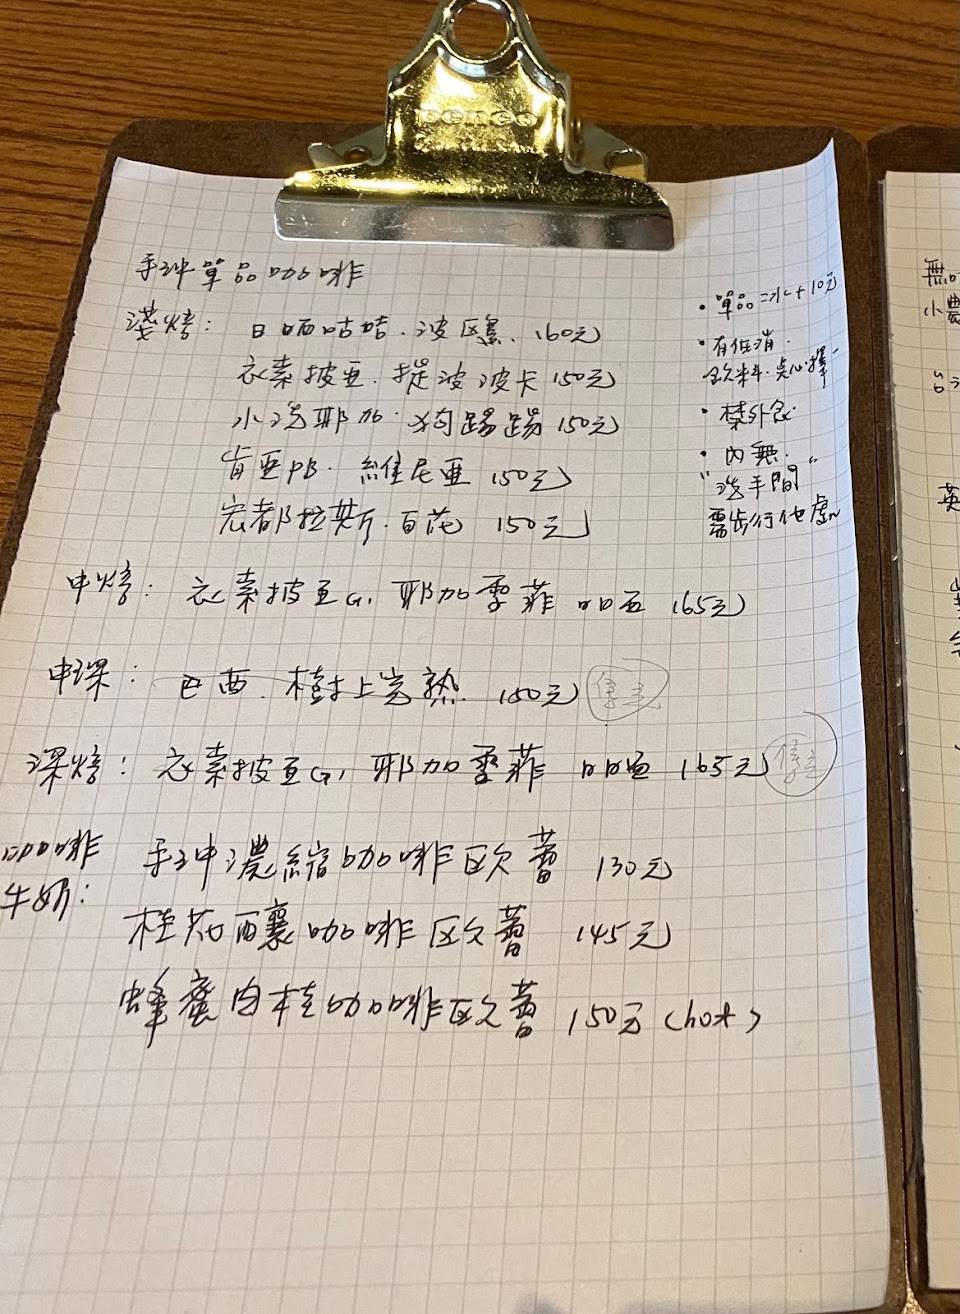 PENCO
手沖單品咖啡
淺焙: 日晒咕咕.波旁 160元
衣索披亞.提波波卡 150元
水洗耶加.狗踢踢 150元
肯亞PB. 維尼亞 150元
宏都拉斯.百花 150元
中焙: 衣索披亞G1 耶加雪菲 日晒 165元
中深: 巴西.樹上完熟 150元 停売
深焙: 衣索披亞G1 耶加雪菲 日晒 165元 停売
咖啡牛奶: 手沖濃縮咖啡歐蕾 130元
桂花釀咖啡歐蕾 145元
蜂蜜肉桂咖啡歐蕾 150元 (hot)
・單品=冰+10元
・有低消.
飲料.點心擇一
・禁外食
・內無.
"洗手間"
需步行他處
無
小農
英